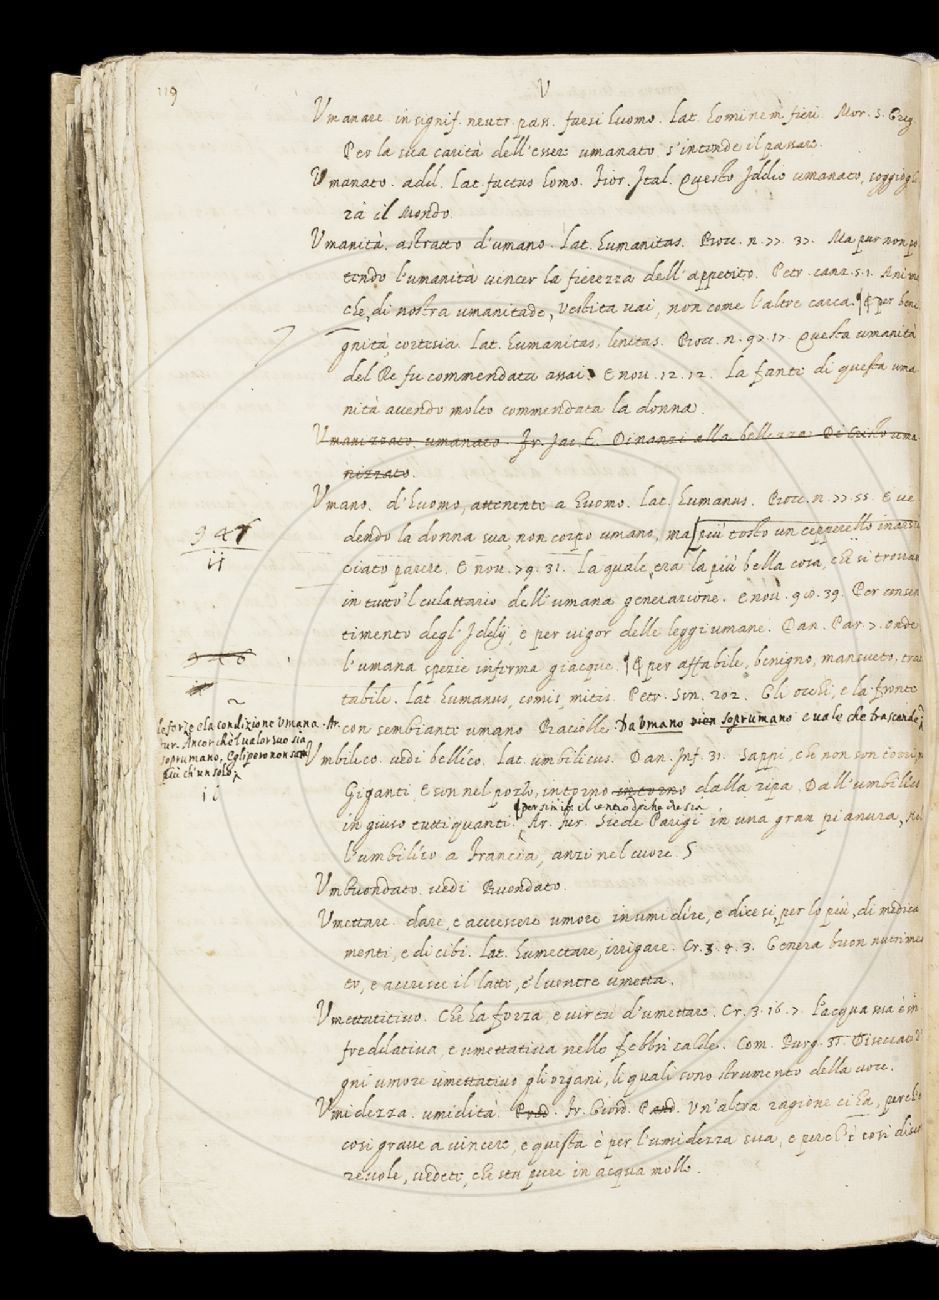 119
V
Vmanare in signif. neutr. pass. farsi huomo. Lat. hominem fieri. Mor. S. Greg.
Per la sua carità dell'essere umanato s'intende il passare.
Vmanato. add. Lat. factus homo. Fior. Ital. Questo Iddio umanato, soggiogh
rà il mondo.
Vmanità. astratto d'umano. Lat. humanitas. Bocc. n. 77. 37. Ma pur non po
tendo l'umanità vincer la fierezza dell'appetito. Petr. canz. 5. 1. Anima
che, di nostra umanitade, Vestita vai, non come l'altre carca. ¶ per beni
gnità, cortesia. Lat. humanitas, lenitas. Bocc. n. 97. 17. Questa umanità
del Re fu commendata assai. E nou. 12. 12. La fante di questa uma
nità avendo molto commendata la donna.
Vmanizzato umanato. Fr. Jac. T. Dinanzi alla bellezza Di Cristo uma
nizzato.
Vmano. d'huomo, attenente a huomo. Lat. humanus. Bocc. n. 77. 55. E ve
dendo la donna sua, non corpo umano, ma più tosto un cepperello inarsic
ciato parere. E nou. 79. 31. La quale, era la più bella cosa, che si trovas
in tutto 'l culattario dell'umana generazione. E nou. 98. 39. Per consen
timento degl'Iddij, e per vigor delle leggi umane. Dan. Par. 7. onde
l'umana spezie inferma giacque. ¶ per affabile, benigno, mansueto, trat
tabile. Lat. humanus, comis, mitis. Petr. Son. 202. Gli occhi, e la fronte
con sembiante umano Baciolle. Da umano vien soprumano e uale che trascende
946
ii
le forze e la condizione Vmana. Ar.
fur. Ancor che 'l ualor suo sia
soprumano, Egli pero non sarà
più ch'un solo
ii
Vmbilico. vedi bellíco. Lat. umbilicus. Dan. Inf. 31. Sappi, che non son torri, m
Giganti, E son nel pozzo, intorno intorno dalla ripa, Dall'umbilico
in giuso tutti quanti. per sinif. il centro di che che sia
Ar. Fur. Siede Parigi in una gran pianura, Nel
l'umbilíco a Francia, anzi nel cuore.
Vmbuondato. vedi Buondato.
Vmettare. dare, e accrescere umore inumidire, e dicesi, per lo più, di medica
menti, e di cibi. Lat. humectare, irrigare. Cr. 3. 4. 3. Genera buon nutrimen
to, e accresce il latte, e 'l ventre umetta.
Vmettatiuo. Che ha forza, e virtù d'umettare. Cr. 3. 16. 7. L'acqua sua è in
freddatiua, e umettatiua nelle febbri calde. Com. Purg. 31. Diseccat d'
gni umore umettativo gli organi, li quali sono strumento della voce.
Vmidezza. umidità. Fr. Giord. Pred. Vn'altra ragione ci ha, perch'è
così grave a vincere, e questa è per l'umidezza sua, e perch'è così disor
revole, vedete, che sta pure in acqua molle.